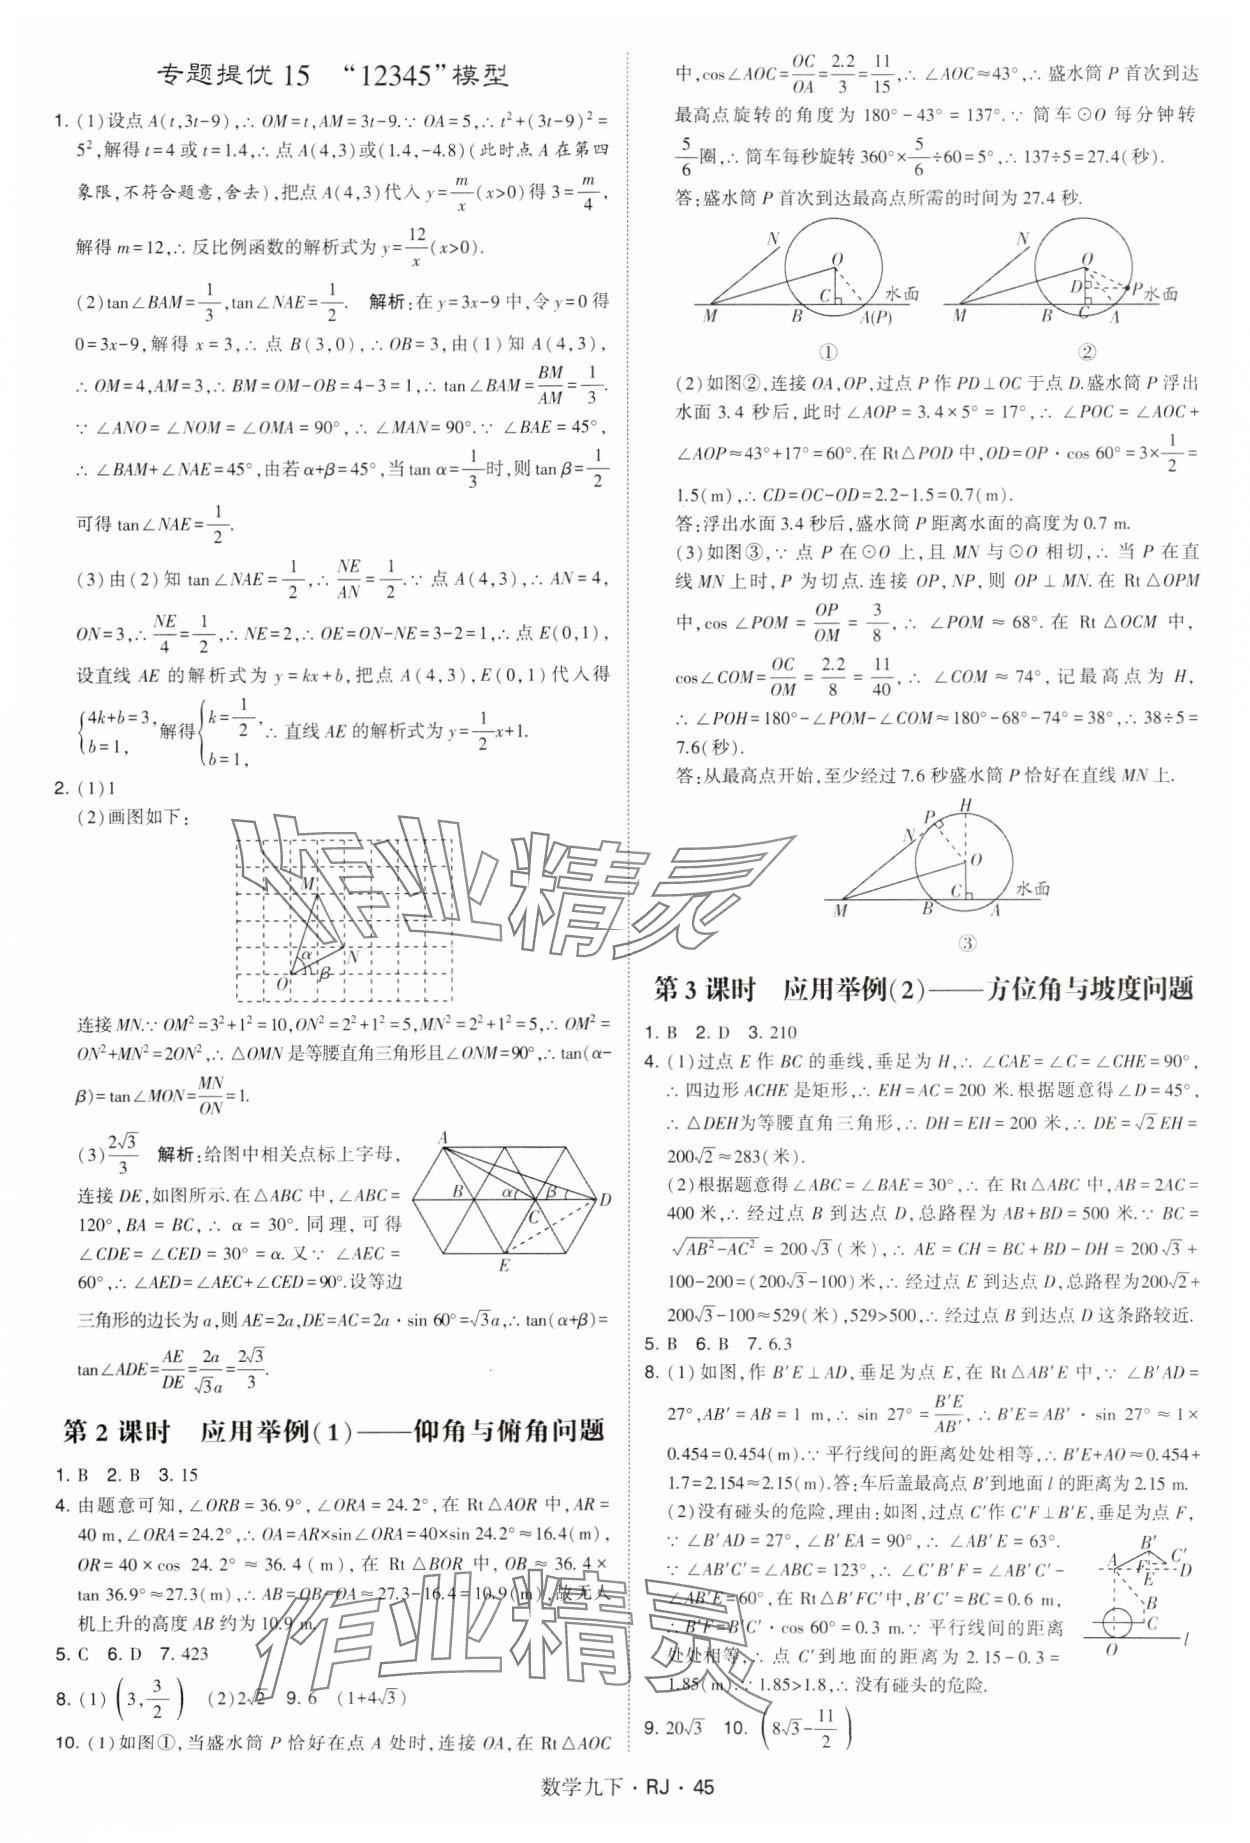 专题提优 15 “12345”模型
1. (1)设点A(t,3t-9),∴ OM=t,AM=3t-9.∵ OA=5,∴ t²+(3t-9)²=
5²,解得t=4或t=1.4,∴ 点A(4,3)或(1.4,-4.8)(此时点A在第四
象限,不符合题意,舍去),把点A(4,3)代入y=m/x(x>0)得3=m/4,
解得m=12,∴ 反比例函数的解析式为y=12/x(x>0).
(2)tan∠BAM=1/3,tan∠NAE=1/2. 解析:在y=3x-9中,令y=0得
0=3x-9,解得x=3,∴ 点B(3,0),∴ OB=3,由(1)知A(4,3),
∴ OM=4,AM=3,∴ BM=OM-OB=4-3=1,∴ tan∠BAM=BM/AM=1/3.
∵ ∠ANO=∠NOM=∠OMA=90°,∴ ∠MAN=90°.∵ ∠BAE=45°,
∴ ∠BAM+∠NAE=45°,由若α+β=45°,当tan α=1/3时,则tan β=1/2
可得tan∠NAE=1/2.
(3)由(2)知tan∠NAE=1/2,∴ NE/AN=1/2.∵ 点A(4,3),∴ AN=4,
ON=3,∴ NE/4=1/2,∴ NE=2,∴ OE=ON-NE=3-2=1,∴ 点E(0,1),
设直线AE的解析式为y=kx+b,把点A(4,3),E(0,1)代入得
{4k+b=3, b=1, 解得{k=1/2, b=1, ∴ 直线AE的解析式为y=1/2x+1.
2. (1)1
(2)画图如下:
M
α
N
β
O
连接MN.∵ OM²=3²+1²=10,ON²=2²+1²=5,MN²=2²+1²=5,∴ OM²=
ON²+MN²=2ON²,∴ △OMN是等腰直角三角形且∠ONM=90°,∴ tan(α-
β)=tan∠MON=MN/ON=1.
(3)2√3/3 解析:给图中相关点标上字母,
连接DE,如图所示.在△ABC中,∠ABC=
120°,BA=BC,∴ α=30°.同理,可得
∠CDE=∠CED=30°=α.又∵ ∠AEC=
60°,∴ ∠AED=∠AEC+∠CED=90°.设等边
A
B α β
C D
E
三角形的边长为a,则AE=2a,DE=AC=2a·sin 60°=√3a,∴ tan(α+β)=
tan∠ADE=AE/DE=2a/√3a=2√3/3.
第2课时 应用举例(1)——仰角与俯角问题
1. B 2. B 3. 15
4. 由题意可知,∠ORB=36.9°,∠ORA=24.2°,在Rt△AOR中,AR=
40 m,∠ORA=24.2°,∴ OA=AR×sin∠ORA=40×sin 24.2°≈16.4(m),
OR=40×cos 24.2°≈36.4(m),在Rt△BOR中,OB≈36.4×
tan 36.9°≈27.3(m),∴ AB=OB-OA≈27.3-16.4=10.9(m),故无人
机上升的高度AB约为10.9 m.
5. C 6. D 7. 423
8. (1)(3,3/2) (2)2√2 9. 6 (1+4√3)
10. (1)如图①,当盛水筒P恰好在点A处时,连接OA,在Rt△AOC
中,cos∠AOC=OC/OA=2.2/3=11/15,∴ ∠AOC≈43°,∴ 盛水筒P首次到达
最高点旋转的角度为180°-43°=137°.∵ 筒车⊙O每分钟转
5/6圈,∴ 筒车每秒旋转360°×5/6÷60=5°,∴ 137÷5=27.4(秒).
答:盛水筒P首次到达最高点所需的时间为27.4秒.
N O C 水面 M B A(P)
①
N O D P C 水面 M B A
②
(2)如图②,连接OA,OP,过点P作PD⊥OC于点D.盛水筒P浮出
水面3.4秒后,此时∠AOP=3.4×5°=17°,∴ ∠POC=∠AOC+
∠AOP≈43°+17°=60°.在Rt△POD中,OD=OP·cos 60°=3×1/2=
1.5(m),∴ CD=OC-OD=2.2-1.5=0.7(m).
答:浮出水面3.4秒后,盛水筒P距离水面的高度为0.7 m.
(3)如图③,∵ 点P在⊙O上,且MN与⊙O相切,∴ 当P在直
线MN上时,P为切点.连接OP,NP,则OP⊥MN.在Rt△OPM
中,cos∠POM=OP/OM=3/8,∴ ∠POM≈68°.在Rt△OCM中,
cos∠COM=OC/OM=2.2/8=11/40,∴ ∠COM≈74°,记最高点为H,
∴ ∠POH=180°-∠POM-∠COM≈180°-68°-74°=38°,∴ 38÷5=
7.6(秒).
答:从最高点开始,至少经过7.6秒盛水筒P恰好在直线MN上.
H P N O C 水面 M B A
③
第3课时 应用举例(2)——方位角与坡度问题
1. B 2. D 3. 210
4. (1)过点E作BC的垂线,垂足为H,∴ ∠CAE=∠C=∠CHE=90°,
∴ 四边形ACHE是矩形,∴ EH=AC=200米.根据题意得∠D=45°,
∴ △DEH为等腰直角三角形,∴ DH=EH=200米,∴ DE=√2EH=
200√2≈283(米).
(2)根据题意得∠ABC=∠BAE=30°,∴ 在Rt△ABC中,AB=2AC=
400米,∴ 经过点B到达点D,总路程为AB+BD=500米.∵ BC=
√(AB²-AC²)=200√3(米),∴ AE=CH=BC+BD-DH=200√3+
100-200=(200√3-100)米,∴ 经过点E到达点D,总路程为200√2+
200√3-100≈529(米),529>500,∴ 经过点B到达点D这条路较近.
5. B 6. B 7. 6.3
8. (1)如图,作B′E⊥AD,垂足为点E,在Rt△AB′E中,∵ ∠B′AD=
27°,AB′=AB=1 m,∴ sin 27°=B′E/AB′,∴ B′E=AB′·sin 27°≈1×
0.454=0.454(m).∵ 平行线间的距离处处相等,∴ B′E+AO≈0.454+
1.7=2.154≈2.15(m).答:车后盖最高点B′到地面l的距离为2.15 m.
(2)没有碰头的危险,理由:如图,过点C′作C′F⊥B′E,垂足为点F,
∵ ∠B′AD=27°,∠B′EA=90°,∴ ∠AB′E=63°.
∵ ∠AB′C′=∠ABC=123°,∴ ∠C′B′F=∠AB′C′-
∠AB′E=60°,在Rt△B′FC′中,B′C′=BC=0.6 m,
∴ B′F=B′C′·cos 60°=0.3 m.∵ 平行线间的距离
处处相等,∴ 点C′到地面的距离为2.15-0.3=
1.85(m).∵ 1.85>1.8,∴ 没有碰头的危险.
B′ A F C′ E D B C O l
9. 20√3 10. (8√3-11/2)
数学九下·RJ·45
作业精灵
作业精灵